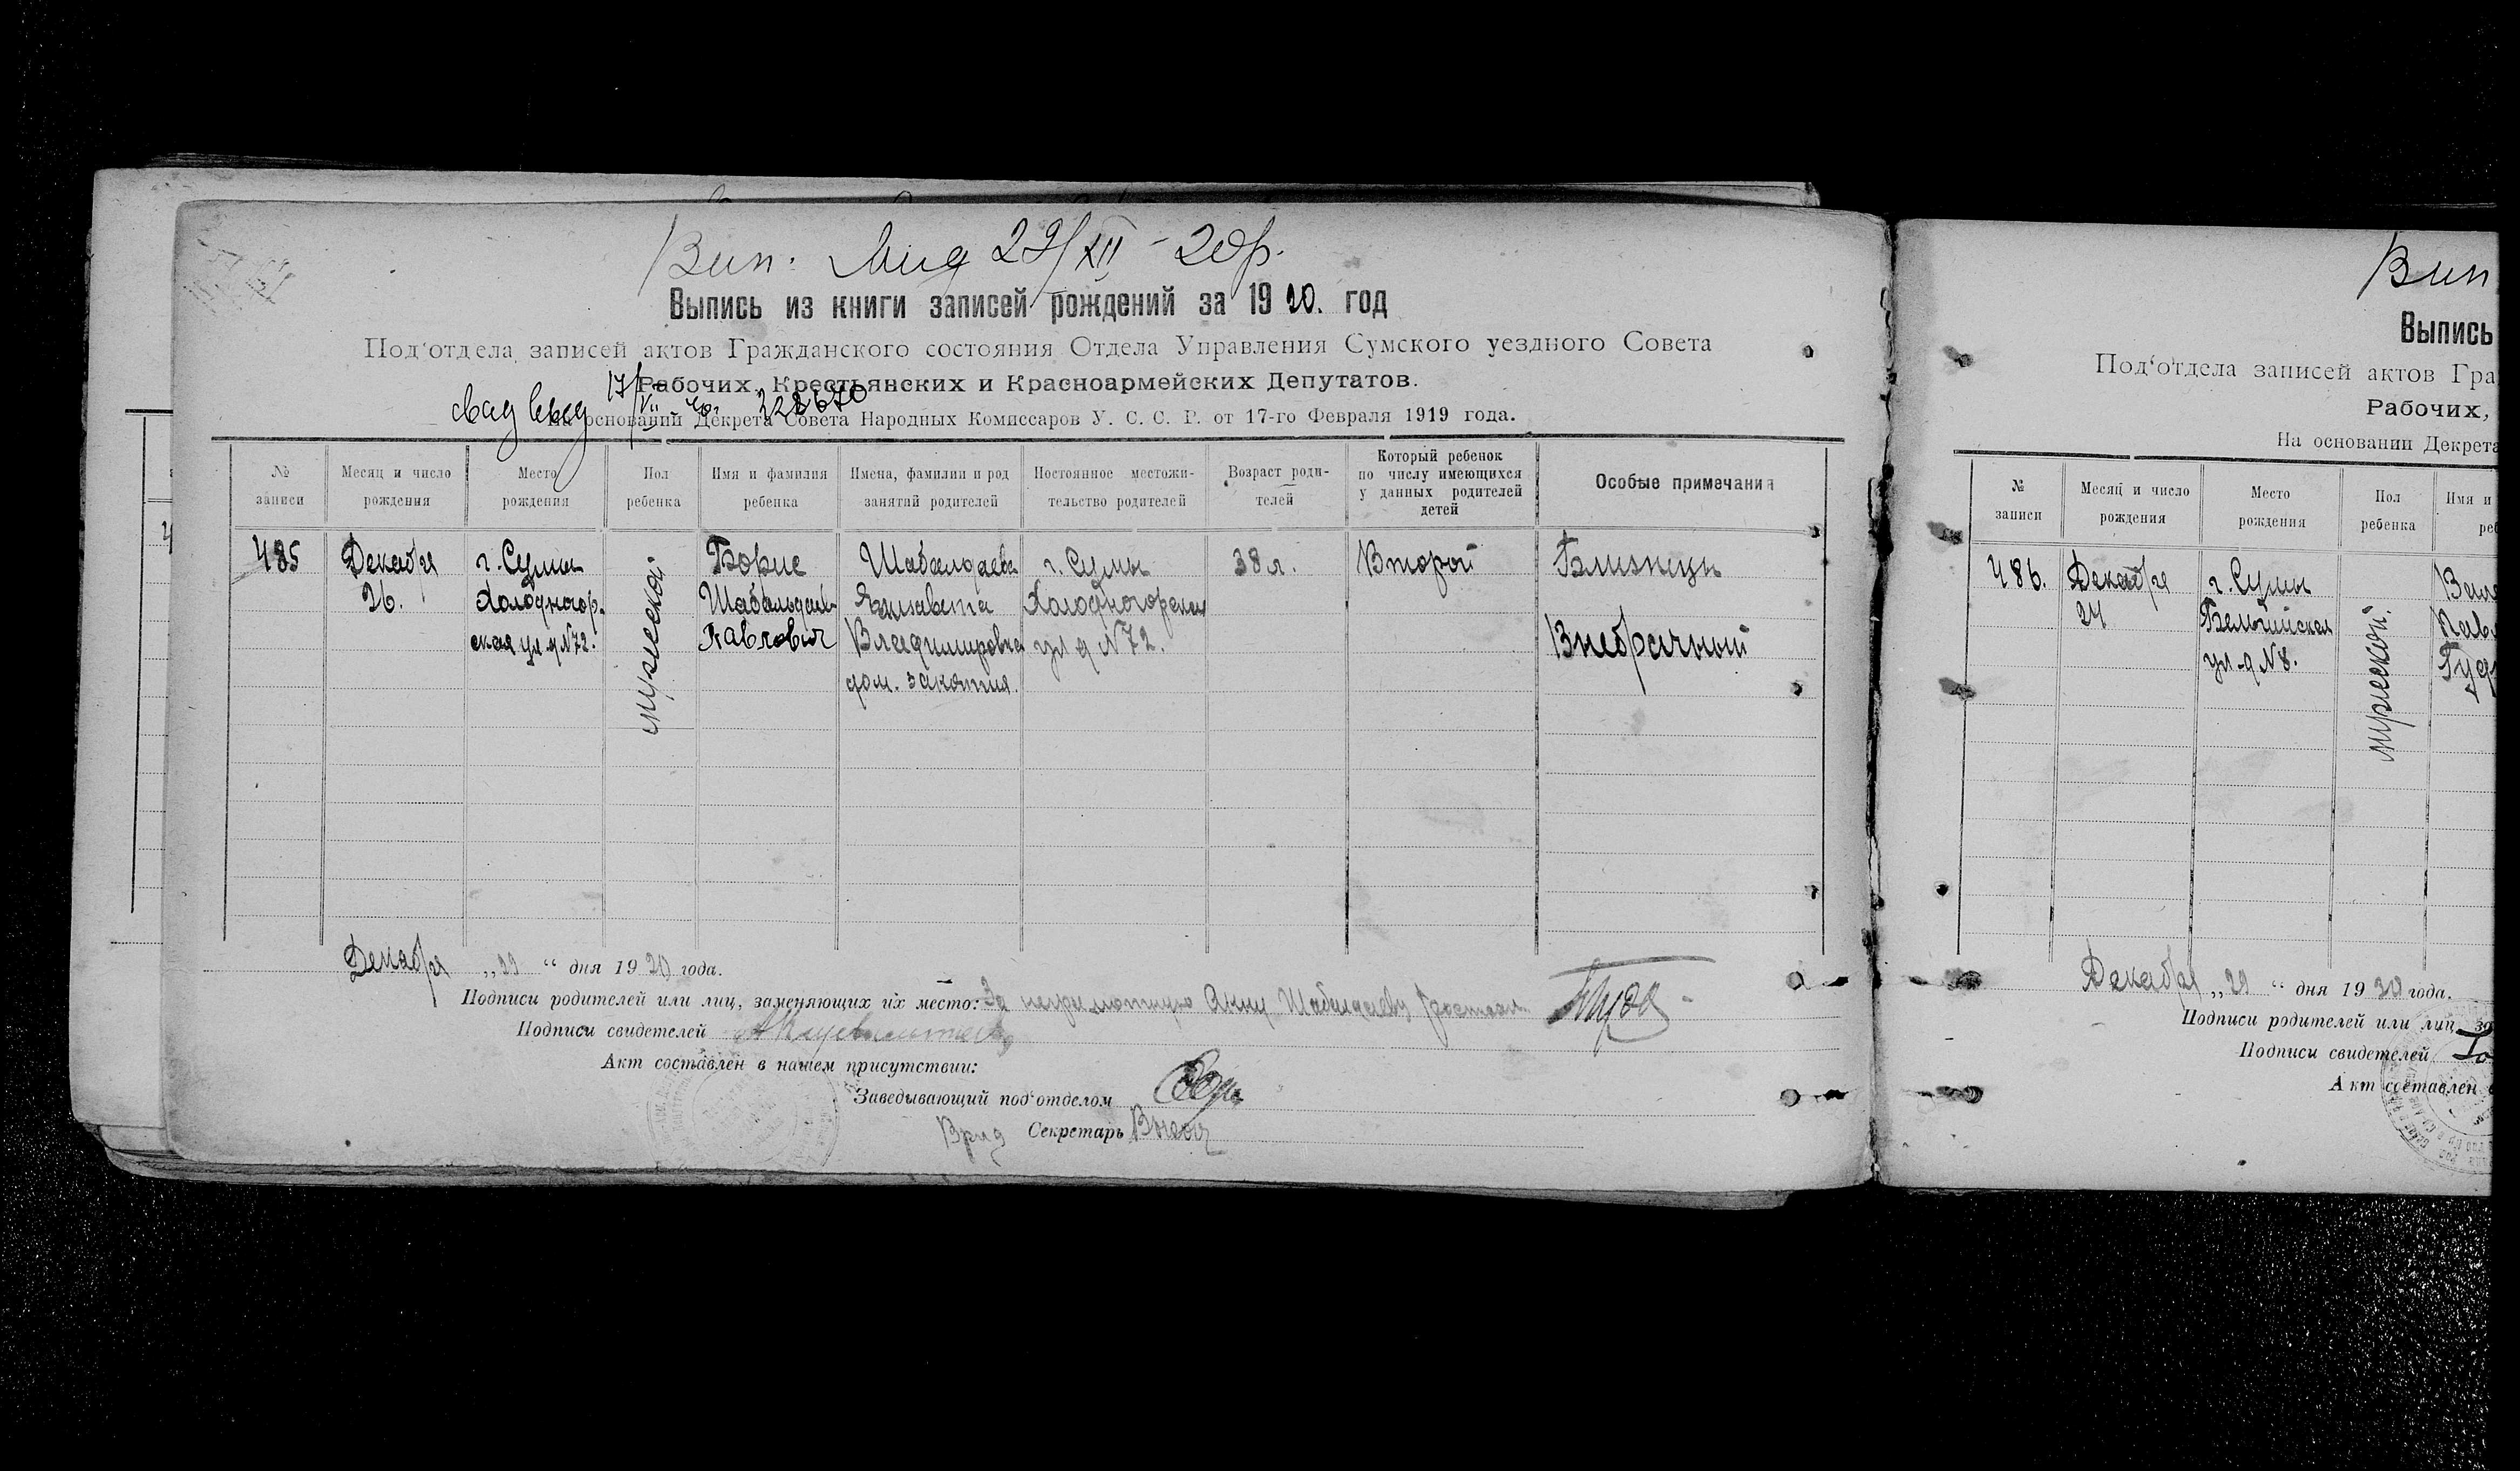 Вип. Лид 29/XII - 20р.
Выпись из книги записей рождений за 1920. год
Под‘отдела записей актов Гражданского состояния Отдела Управления Сумского уездного Совета
Рабочих, Крестьянских и Красноармейских Депутатов.
17/VII - 40. 228670
На основании Декрета Совета Народных Комиссаров У. С. С. Р. от 17-го Февраля 1919 года.
№ записи
Месяц и число рождения
Место рождения
Пол ребенка
Имя и фамилия ребенка
Имена, фамилии и род занятий родителей
Постоянное местожительство родителей
Возраст родителей
Который ребенок по числу имеющихся у данных родителей детей
Особые примечания
485
Декабря
26.
г. Сумы
Холодногор.
ская ул д N72.
мужеской
Борис
Шабальдаев
Павлович
Шабалдаева
Елизавета
Владимировна
дом. занятия.
г. Сумы
Холодногорская
ул д N72.
38 л.
Второй
Близнецы
Внебрачный
Декабря „29“ дня 1920 года.
Подписи родителей или лиц, заменяющих их место: За неграмотную Анну Шабалдаеву
Подписи свидетелей
Акт составлен в нашем присутствии:
Заведывающий под‘отделом
Врид Секретарь
Вип
Выпись
Под‘отдела записей актов Гра
Рабочих,
На основании Декрета
№ записи
Месяц и число рождения
Место рождения
Пол ребенка
Имя и
реб
486.
Декабря
24
г. Сумы
Бельгийская
ул д N8.
мужеской.
Декабря „29“ дня 1920 года.
Подписи родителей или лиц, за
Подписи свидетелей
Акт составлен в